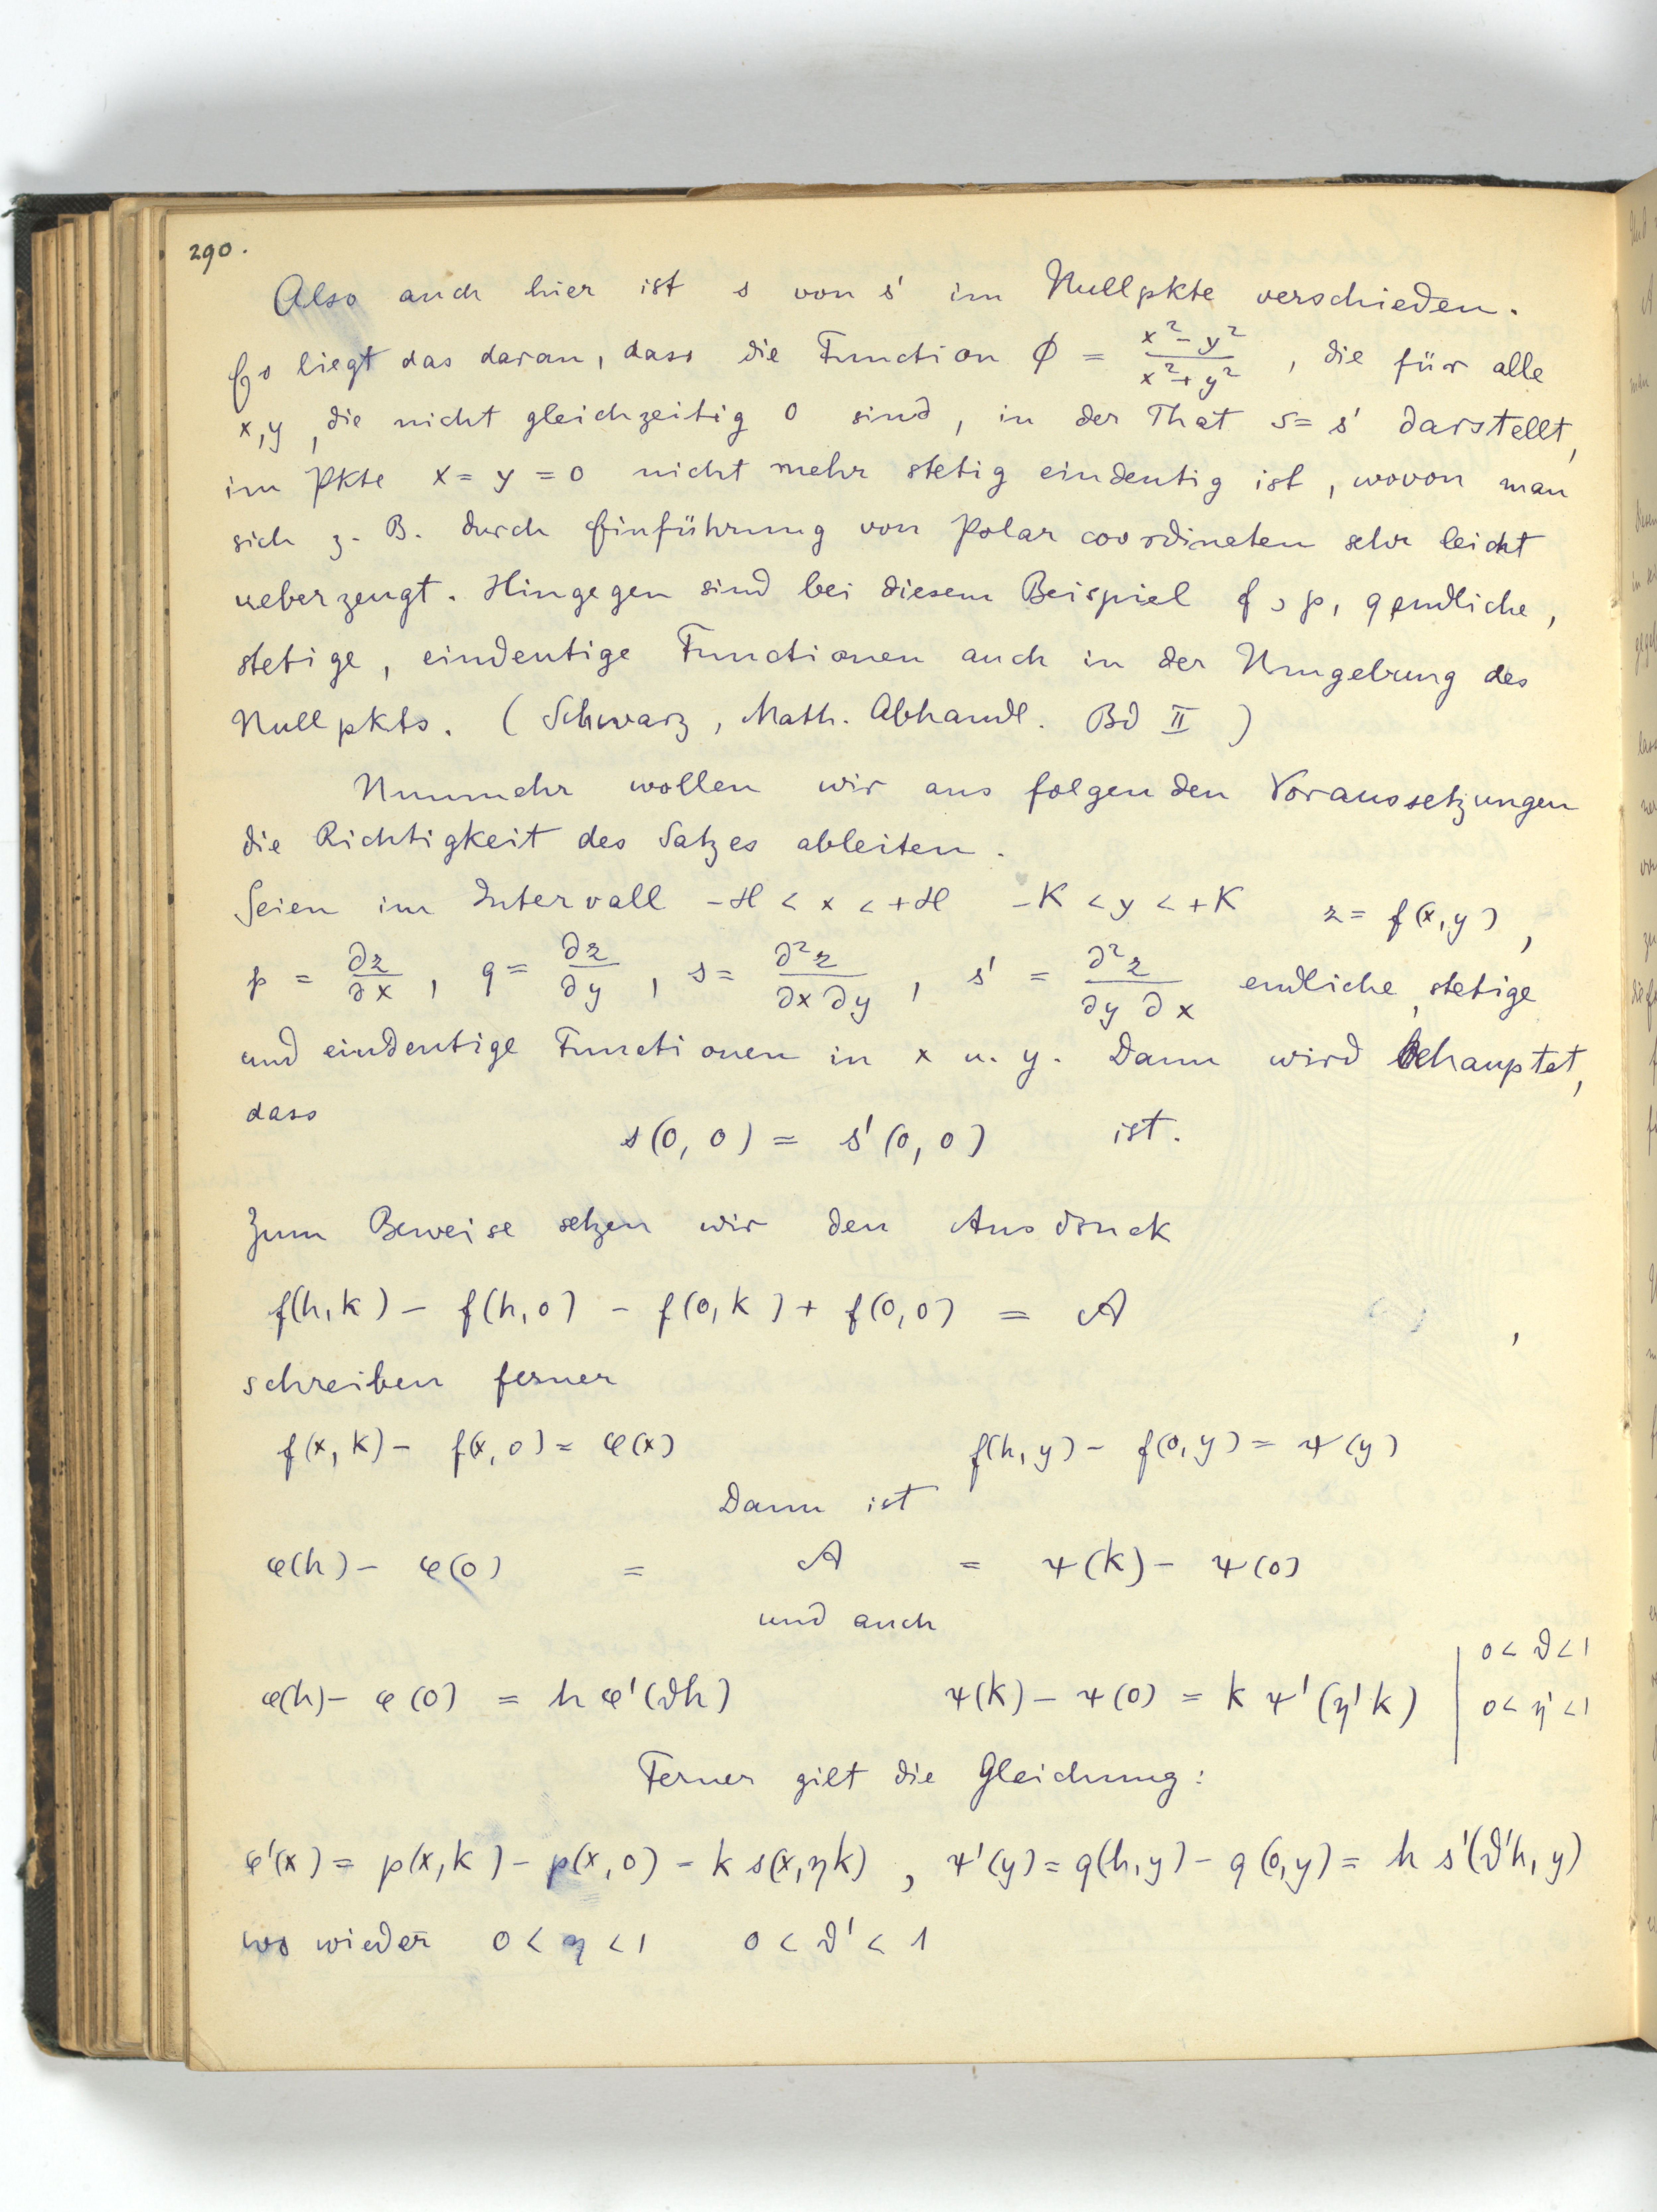 290.
Also auch hier ist s von s' im Nullpkte verschieden.
Es liegt das daran, dass die Function ϕ = (x² − y²)/(x² + y²), die für alle
x, y, die nicht gleichzeitig 0 sind, in der That s = s' darstellt,
im Pkte x = y = 0 nicht mehr stetig eindeutig ist, wovon man
sich z. B. durch Einführung von Polarcoordineten sehr leicht
ueberzeugt. Hingegen sind bei diesem Beispiel f, p, q endliche,
stetige, eindeutige Functionen auch in der Umgebung des
Nullpkts. (Schwarz, Math. Abhandl. Bd II)
Nunmehr wollen wir aus folgenden Voraussetzungen
die Richtigkeit des Satzes ableiten.
Seien im Intervall −H < x < +H −K < y < +K z = f(x, y),
p = ∂z/∂x, q = ∂z/∂y, s = ∂²z/∂x∂y, s' = ∂²z/∂y∂x endliche, stetige
und eindeutige Functionen in x u. y. Dann wird behauptet,
dass
s(0, 0) = s'(0, 0) ist.
Zum Beweise setzen wir den Ausdruck
f(h, k) − f(h, 0) − f(0, k) + f(0, 0) = A,
schreiben ferner
f(x, k) − f(x, 0) = φ(x) f(h, y) − f(0, y) = ψ(y)
Dann ist
φ(h) − φ(0) = A = ψ(k) − ψ(0)
und auch
φ(h) − φ(0) = h φ'(ϑh) ψ(k) − ψ(0) = k ψ'(η'k) | 0 < ϑ < 1
0 < η' < 1
Ferner gilt die Gleichung:
φ'(x) = p(x, k) − p(x, 0) = k s(x, ηk), ψ'(y) = q(h, y) − q(0, y) = h s'(ϑ'h, y)
wo wieder 0 < η < 1 0 < ϑ' < 1